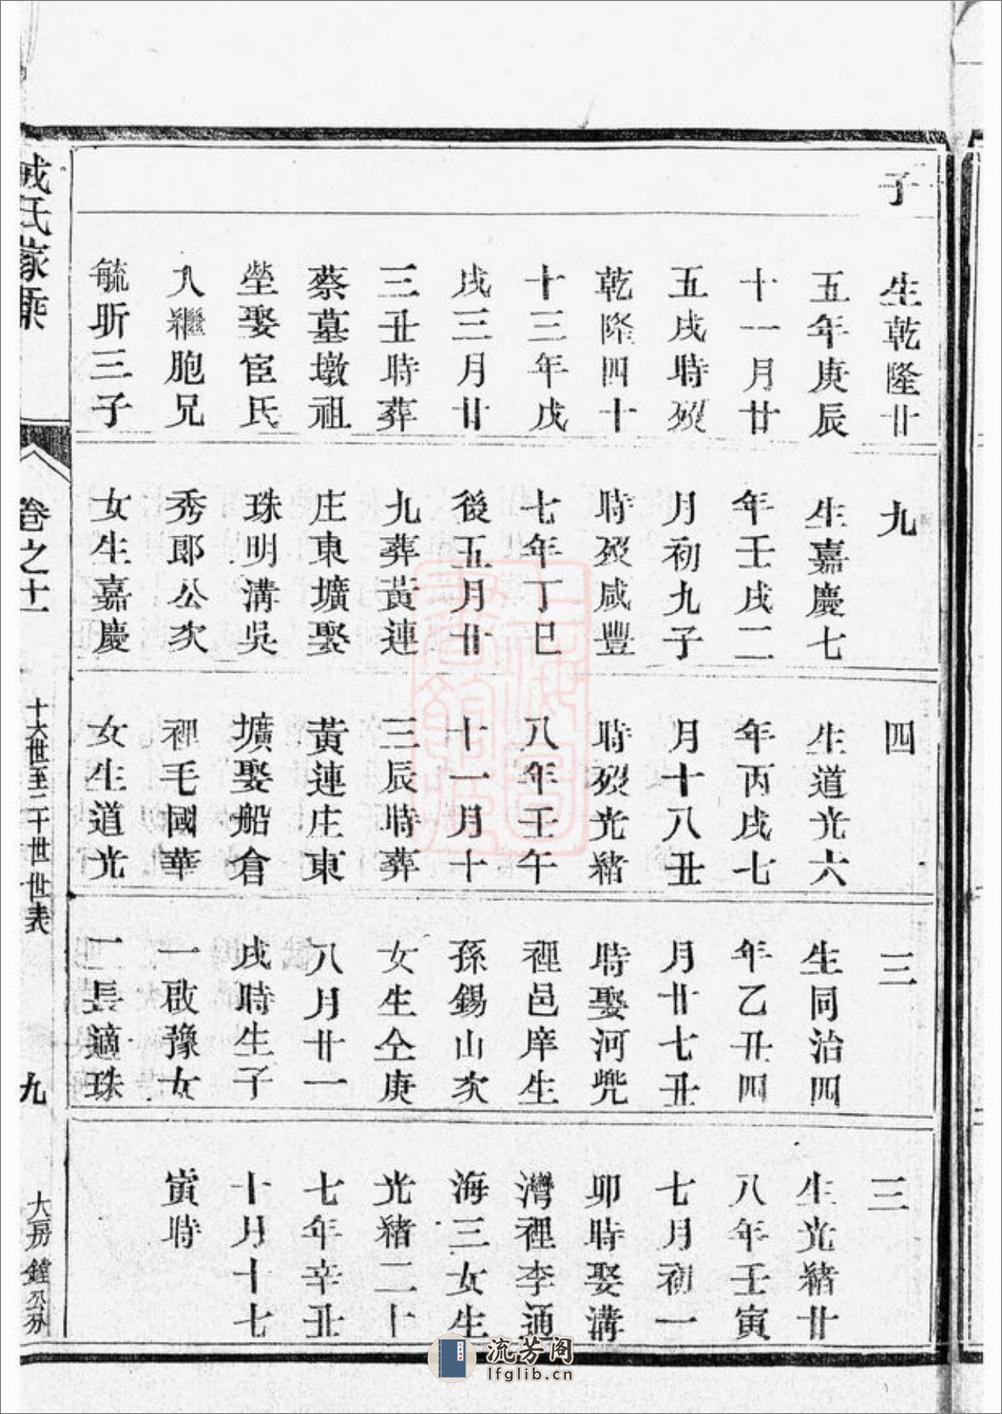 子
生乾隆廿
五年庚辰
十一月廿
五戌時歿
乾隆四十
十三年戊
戌三月廿
三丑時葬
蔡墓墩祖
塋娶宦氏
入繼胞兄
毓昕三子
九
生嘉慶七
年壬戌二
月初九子
時歿咸豐
七年丁巳
後五月廿
九葬黃連
庄東壙娶
珠明溝吳
秀郎公次
女生嘉慶
四
生道光六
年丙戌七
月十八丑
時歿光緒
八年壬午
十一月十
三辰時葬
黃連庄東
壙娶船倉
裡毛國華
女生道光
三
生同治四
年乙丑四
月廿七丑
時娶河兠
裡邑庠生
孫錫山次
女生仝庚
八月廿一
戌時生子
一啟豫女
一長適珠
三
生光緒廿
八年壬寅
七月初一
卯時娶溝
灣裡李通
海三女生
光緒二十
七年辛丑
十月十七
寅時
戚氏家乘
卷之十一
十六世至二十世世表
九
大房鐘公分
流芳阁
lfglib.cn